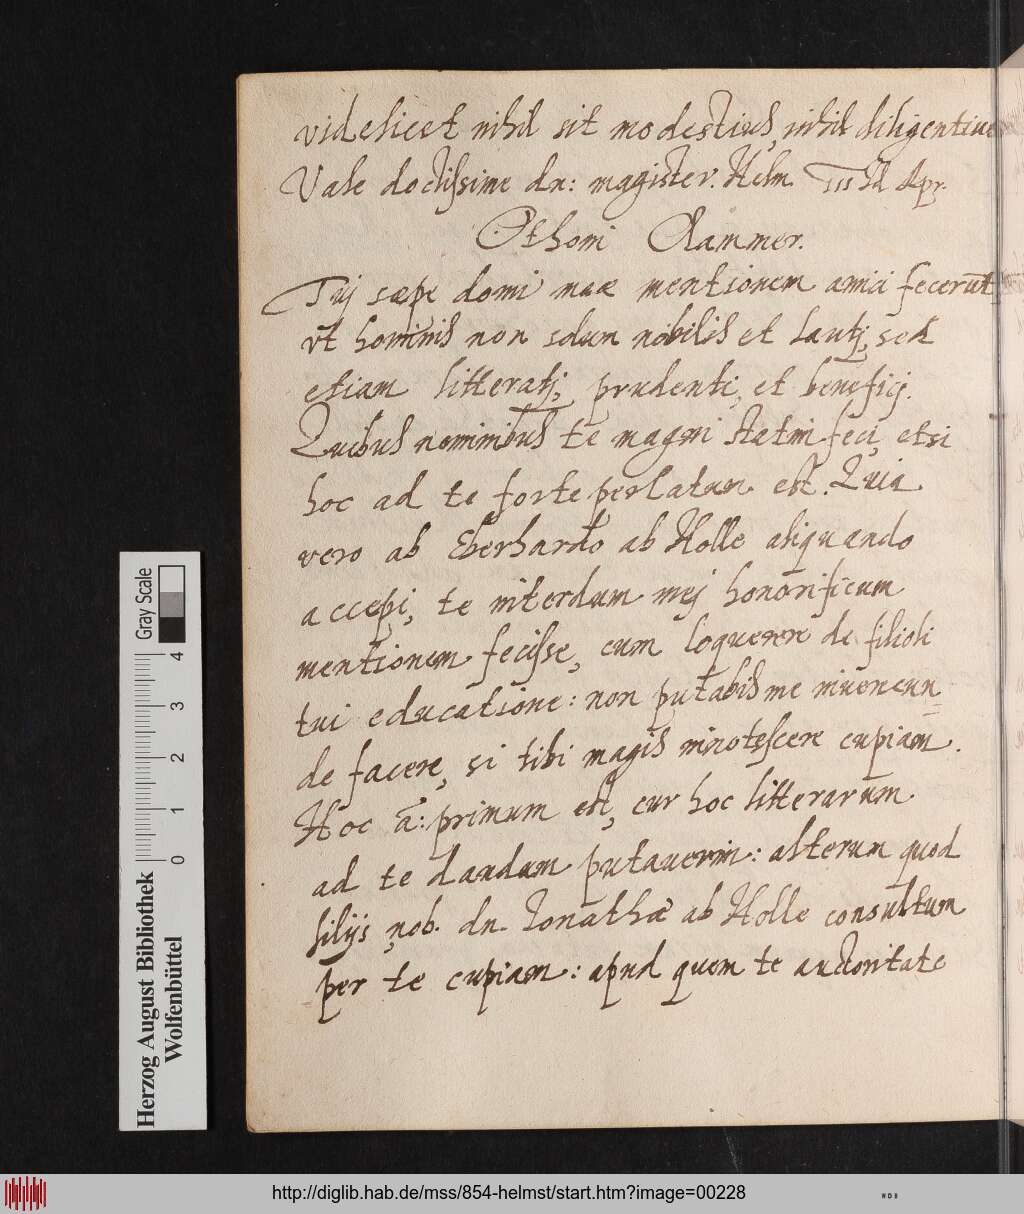 videlicet nihil sit modestius, nihil diligentius
Vale doctissime dn: magister. Helm. III Id Apr.
Othoni Clammer.
Tuj sæpe domi meæ mentionem amici fecerunt
vt hominis non solum nobilis et lautj, sed
etiam litteratj, prudentis, et beneficj.
Quibus nominibus te magni statim feci, etsi
hoc ad te forte perlatum est. Quia
vero ab Eberhardo ab Holle aliquando
accepi, te interdum mej honorificam
mentionem fecisse, cum loquerere de filioli
tui educatione: non putabis me inuerecun
de facere, si tibi magis innotescere cupiam.
Hoc a: primum est, cur hoc litterarum
ad te dandum putauerim: alterum quod
filijs nob. dn. Jonathæ ab Holle consultum
per te cupiam: apud quem te auctoritate
Gray Scale
4
3
2
1
0
Herzog August Bibliothek
Wolfenbüttel
http://diglib.hab.de/mss/854-helmst/start.htm?image=00228